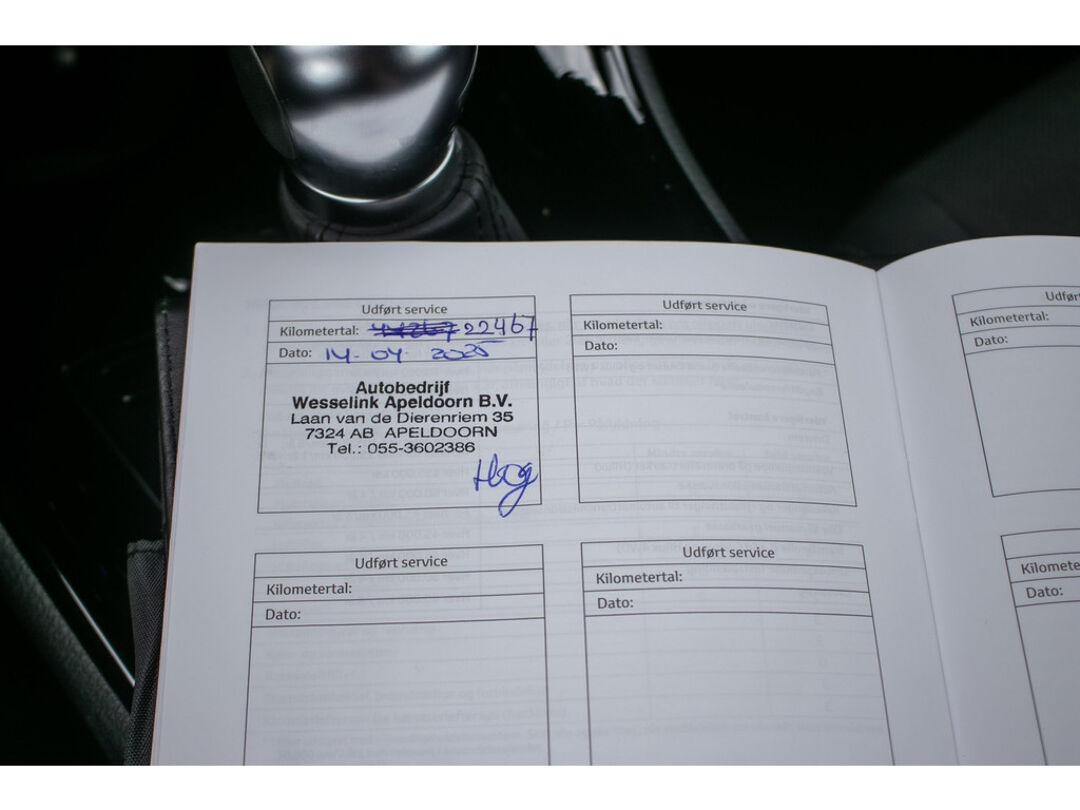 Udført service
Kilometertal: 22467
Dato: 14-04-2025
Autobedrijf
Wesselink Apeldoorn B.V.
Laan van de Dierenriem 35
7324 AB APELDOORN
Tel.: 055-3602386
Udført service
Kilometertal:
Dato:
Udført
Kilometertal:
Dato:
Udført service
Kilometertal:
Dato:
Udført service
Kilometertal:
Dato:
Kilometer
Dato: